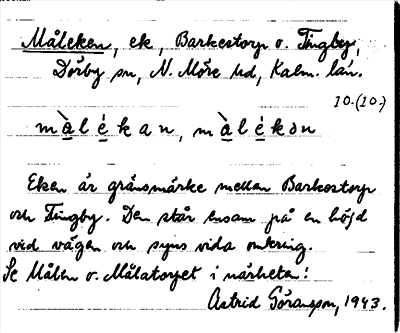 Måleken, ek, Barkestorp o. Tingby,
Dörby sn, N. Möre hd, Kalm. län.
10.(10.)
m à̱ l é̱ k a n, m à̱ l é̱ k ə n
Eken är gränsmärke mellan Barkestorp
och Tingby. Den står ensam på en höjd
vid vägen och syns vida omkring.
Se Målen o. Målatorpet i närheten!
Astrid Göransson, 1943.